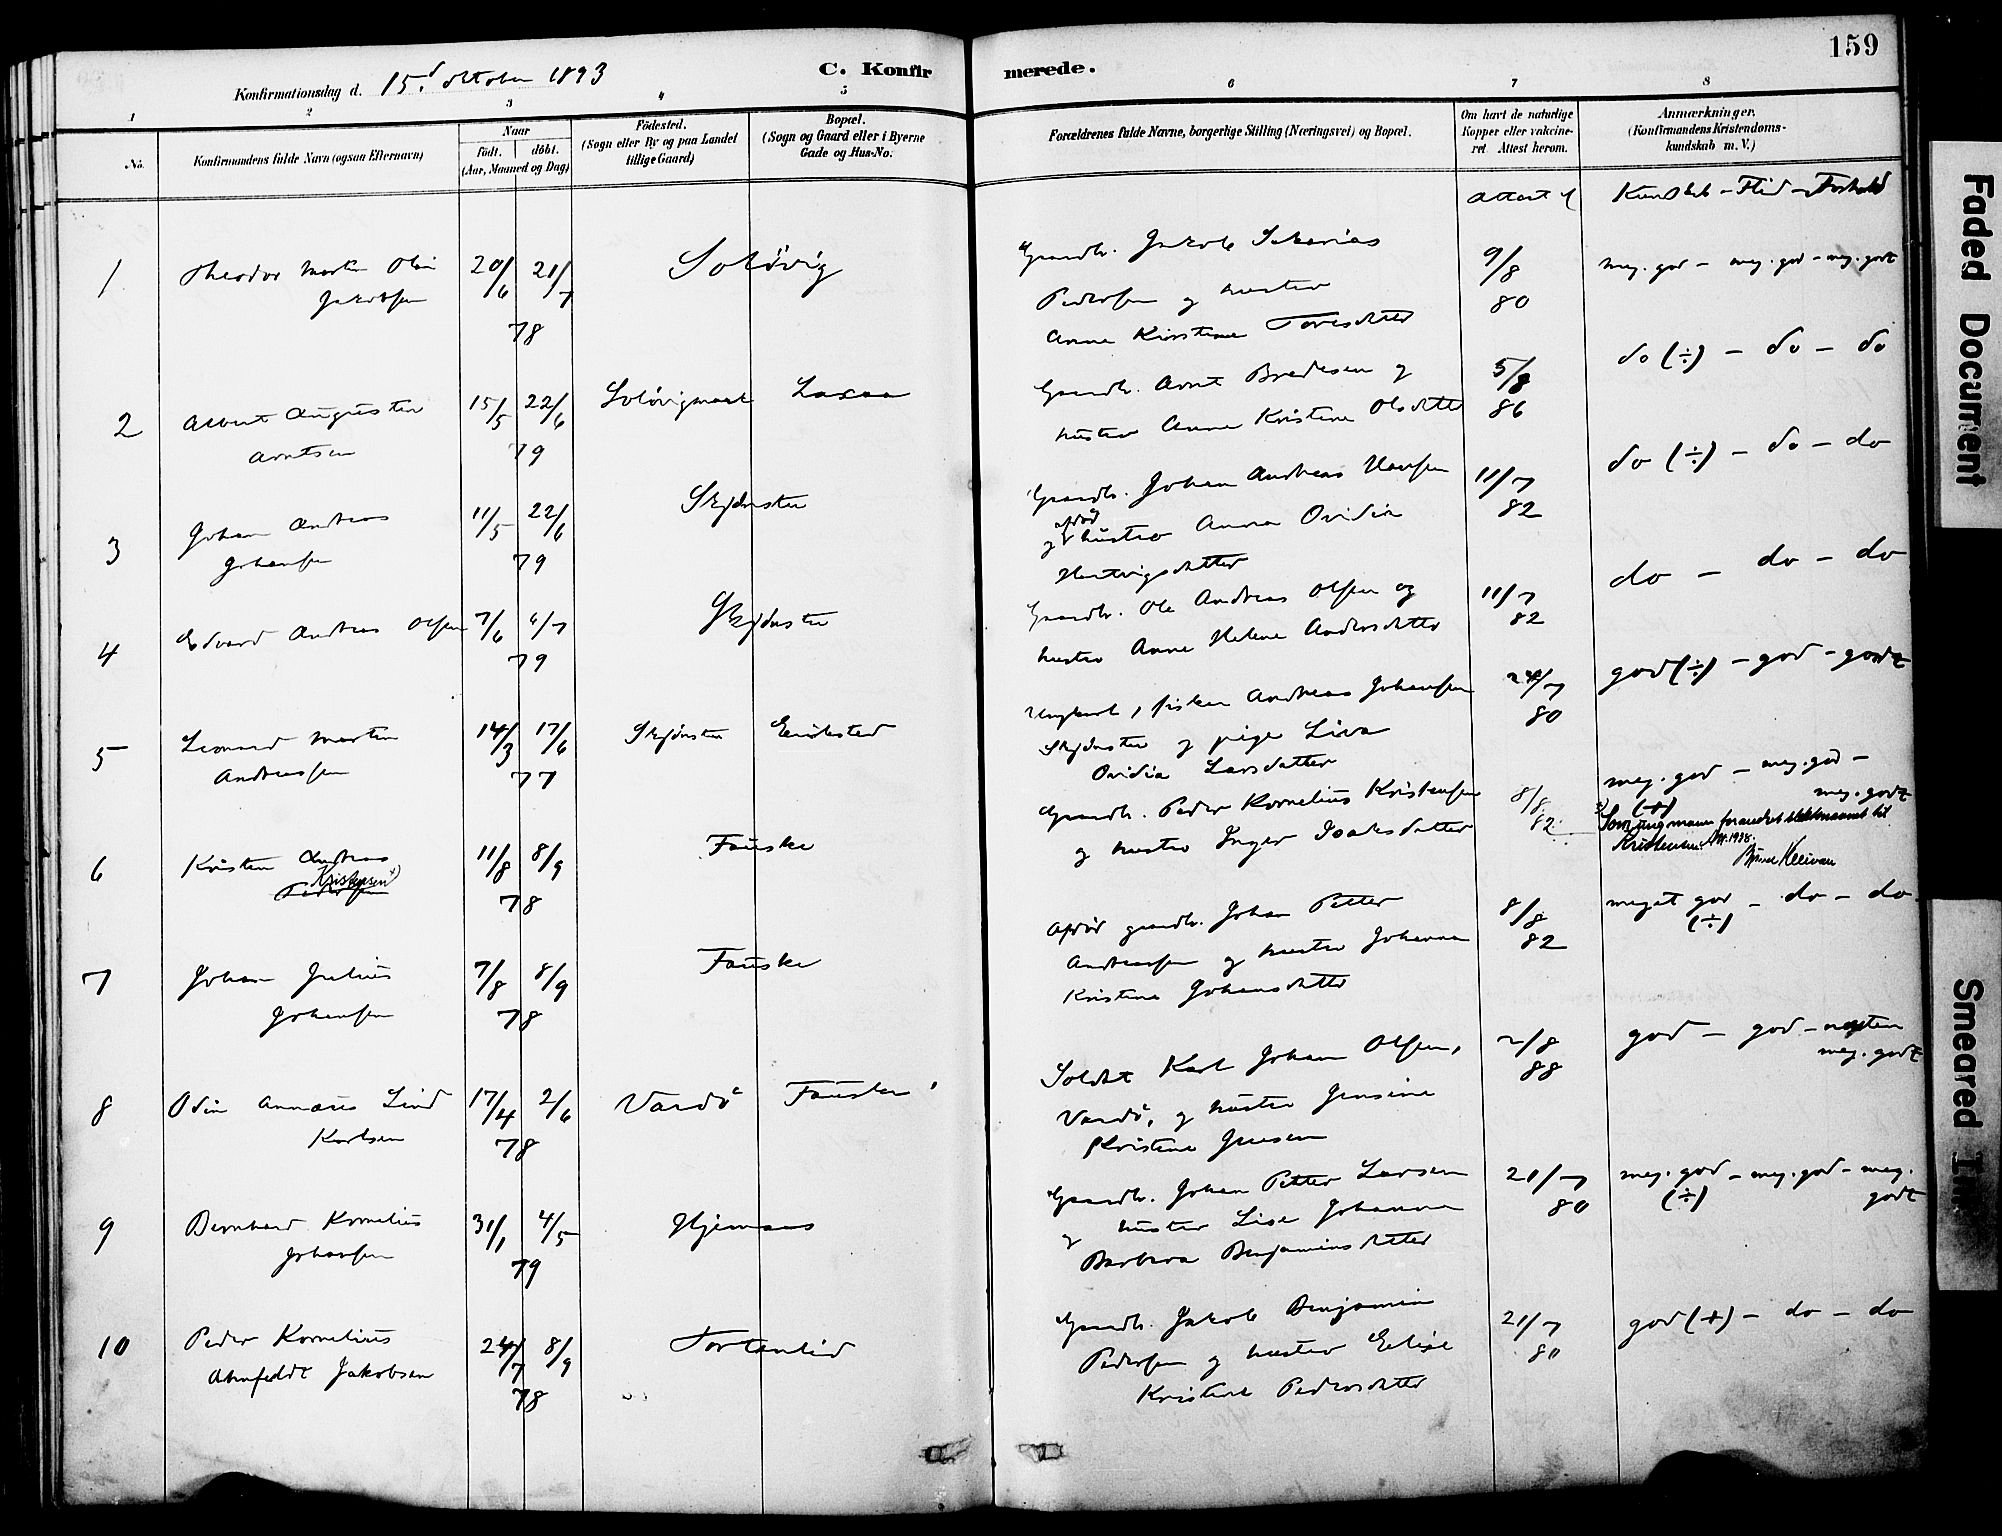 159
C. Konfirmerede.
Konfirmationsdag d. 15.d oktober 1893
1 2 3 4 5 6 7 8
No.
Konfirmandens fulde Navn (ogsaa Efternavn)
Naar
födt. döbt.
(Aar, Maaned og Dag)
Födested.
(Sogn eller By og paa Landet
tillige Gaard)
Bopæl.
(Sogn og Gaard eller i Byerne
Gade og Hus-No.
Forældrenes fulde Navne, borgerlige Stilling (Næringsvei) og Bopæl.
Om havt de naturlige
Kopper eller vakcine-
ret Attest herom.
Anmærkninger.
(Konfirmandens Kristendoms-
kundskab m. V.)
Attest af
Kundskab – Flid – Forhold
1 Theodor Martin Olai
Jakobsen
20/6 21/7
78
Soløvig
Gaardbr. Jakob Sakarias
Pedersen og hustru
Anne Kirstine Toresdatter
9/8
80
meg. god – meg. god – meg. godt
2 Albert Augustin
Arntsen
15/5 22/6
79
Soløvigmark Laxaa
Gaardbr. Arnt Bredesen og
hustru Anne Kristine Olsdatter
5/8
86
do (÷) – do – do
3 Johan Andreas
Johansen
11/5 22/6
79
Skjönsta
Gaardbr. Johan Andreas Hansen
og afdød hustru Anna Ovidia
Hartvigsdatter
11/7
82
do (÷) – do – do
4 Edvard Andreas Olsen
7/6 6/7
79
Skjönsta
Gaardbr. Ole Andreas Olsen og
hustru Anne Helene Andersdatter
11/7
82
do – do – do
5 Leonard Martin
Andreassen
14/3 17/6
77
Skjönsta Erikstad
Ungkarl, fisker Andreas Johansen
Skjönsta og pige Liva
Ovidia Larsdatter
24/7
80
god (÷) – god – godt
6 Kristen Andreas
Pedersen Kristensen x)
11/8 8/9
78
Fauske
Gaardbr. Peder Kornelius Kristensen
og hustru Inger Isaksdatter
8/8
82
meg. god – meg. god –
meg. godt
(+)
x) Som ung mann forandret slektsnavnet til
Kristensen. 1938.
7 Johan Julius
Johansen
7/8 8/9
78
Fauske
Afdød gaardbr. Johan Petter
Andreassen og hustru Johanna
Kristine Johansdatter
8/8
82
meget god – do – do
(÷)
8 Odin Annæus Lind
Karlsen
17/4 2/6
78
Vardö Fauske
Soldat Karl Johan Olsen,
Vardö, og hustru Jensine
Kristine Jensen
2/8
88
god – god – næsten
meg. godt
9 Bernhard Kornelius
Johansen
31/1 4/5
79
Hjemaas
Gaardbr. Johan Petter Larsen
og hustru Lise Johanna
Barbara Benjaminsdatter
21/7
80
meg. god – meg. god – meg.
(÷) godt
10 Peder Kornelius
Ahnfeldt Jakobsen
24/7 8/9
78
Tortenlid
Gaardbr. Jakob Benjamin
Pedersen og hustru Elise
Kristine Pedersdatter
21/7
80
god (+) – do – do
Faded Document
Smeared Ink